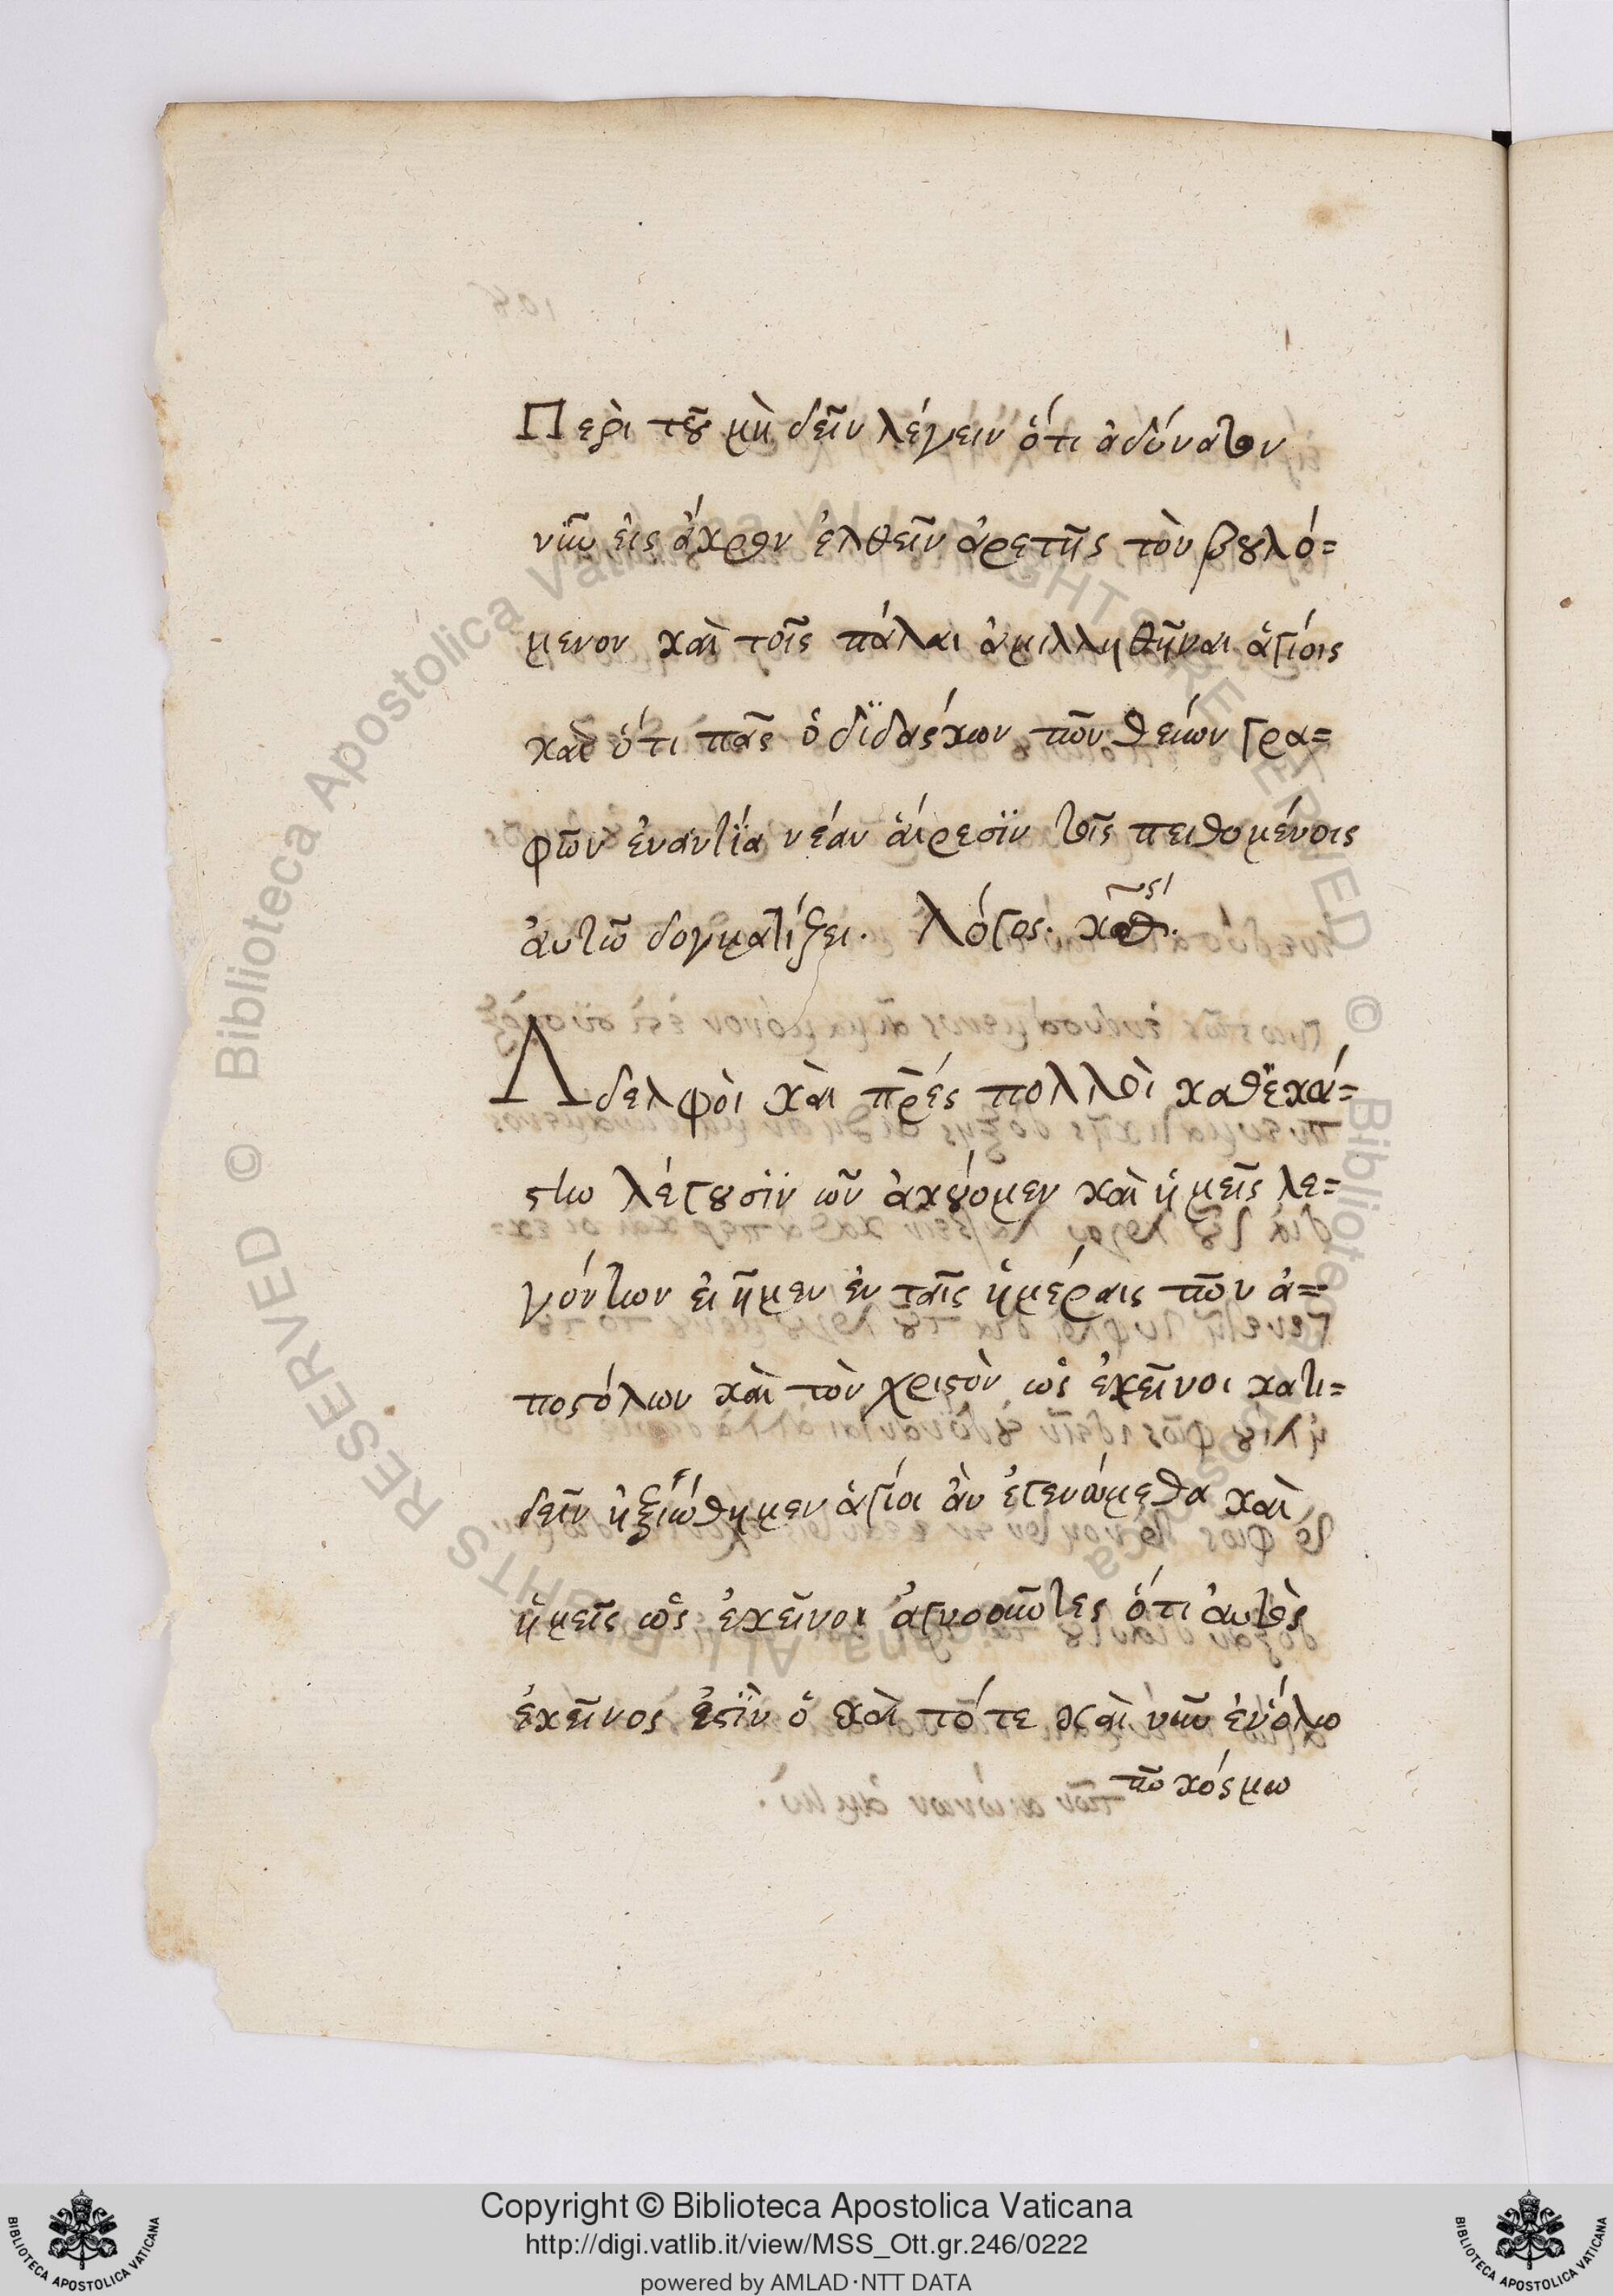 Περὶ τοῦ μὴ δεῖν λέγειν ὅτι ἀδύνατον
νῦν εἰς ἄκρον ἐλθεῖν ἀρετῆς τὸν βουλό=
μενον καὶ τοῖς πάλαι ἁμιλληθῆναι ἁγίοις
καὶ ὅτι πᾶς ὁ διδάσκων τῶν θείων γρα=
φῶν ἐναντία νέαν αἵρεσιν τοῖς πειθομένοις
αὐτῶ δογματίζει. Λόγος.
Ἀδελφοὶ καὶ πρ̅ές πολλοὶ καθεκά=
στην λέγουσιν ὧν ἀκούομεν καὶ ἡμεῖς λε=
γόντων εἰ ἦμεν ἐν ταῖς ἡμέραις τῶν ἀ=
ποστόλων καὶ τὸν χριστὸν ὡς ἐκεῖνοι κατι=
δεῖν ἠξιώθημεν ἅγιοι ἂν ἐγενόμεθα καὶ
ἡμεῖς ὡς ἐκεῖνοι ἀγνοοῦντες ὅτι αὐτὸς
ἐκεῖνός ἐστιν ὁ καὶ τότε καὶ νῦν ἐν ὅλω
τῶ κόσμω
Copyright © Biblioteca Apostolica Vaticana
http://digi.vatlib.it/view/MSS_Ott.gr.246/0222
powered by AMLAD·NTT DATA
BIBLIOTECA APOSTOLICA VATICANA
BIBLIOTECA APOSTOLICA VATICANA